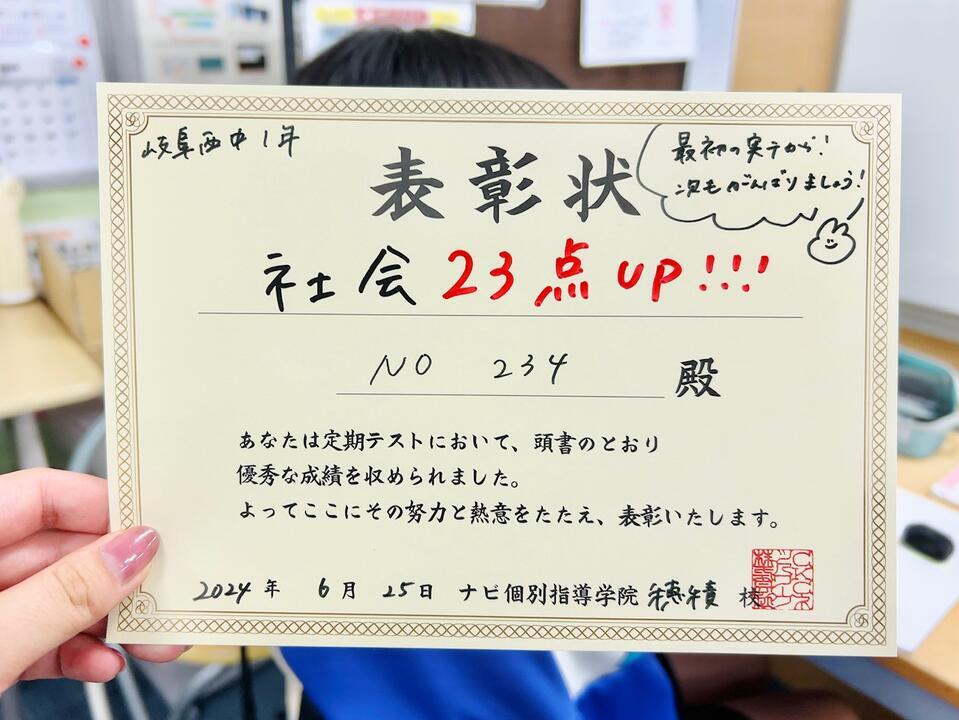 岐阜西中1年
表彰状
最初の実テから!
次もがんばりましょう!
社会 23点UP!!!
NO 234 殿
あなたは定期テストにおいて、頭書のとおり
優秀な成績を収められました。
よってここにその努力と熱意をたたえ、表彰いたします。
2024年 6月 25日 ナビ個別指導学院 穂積 校